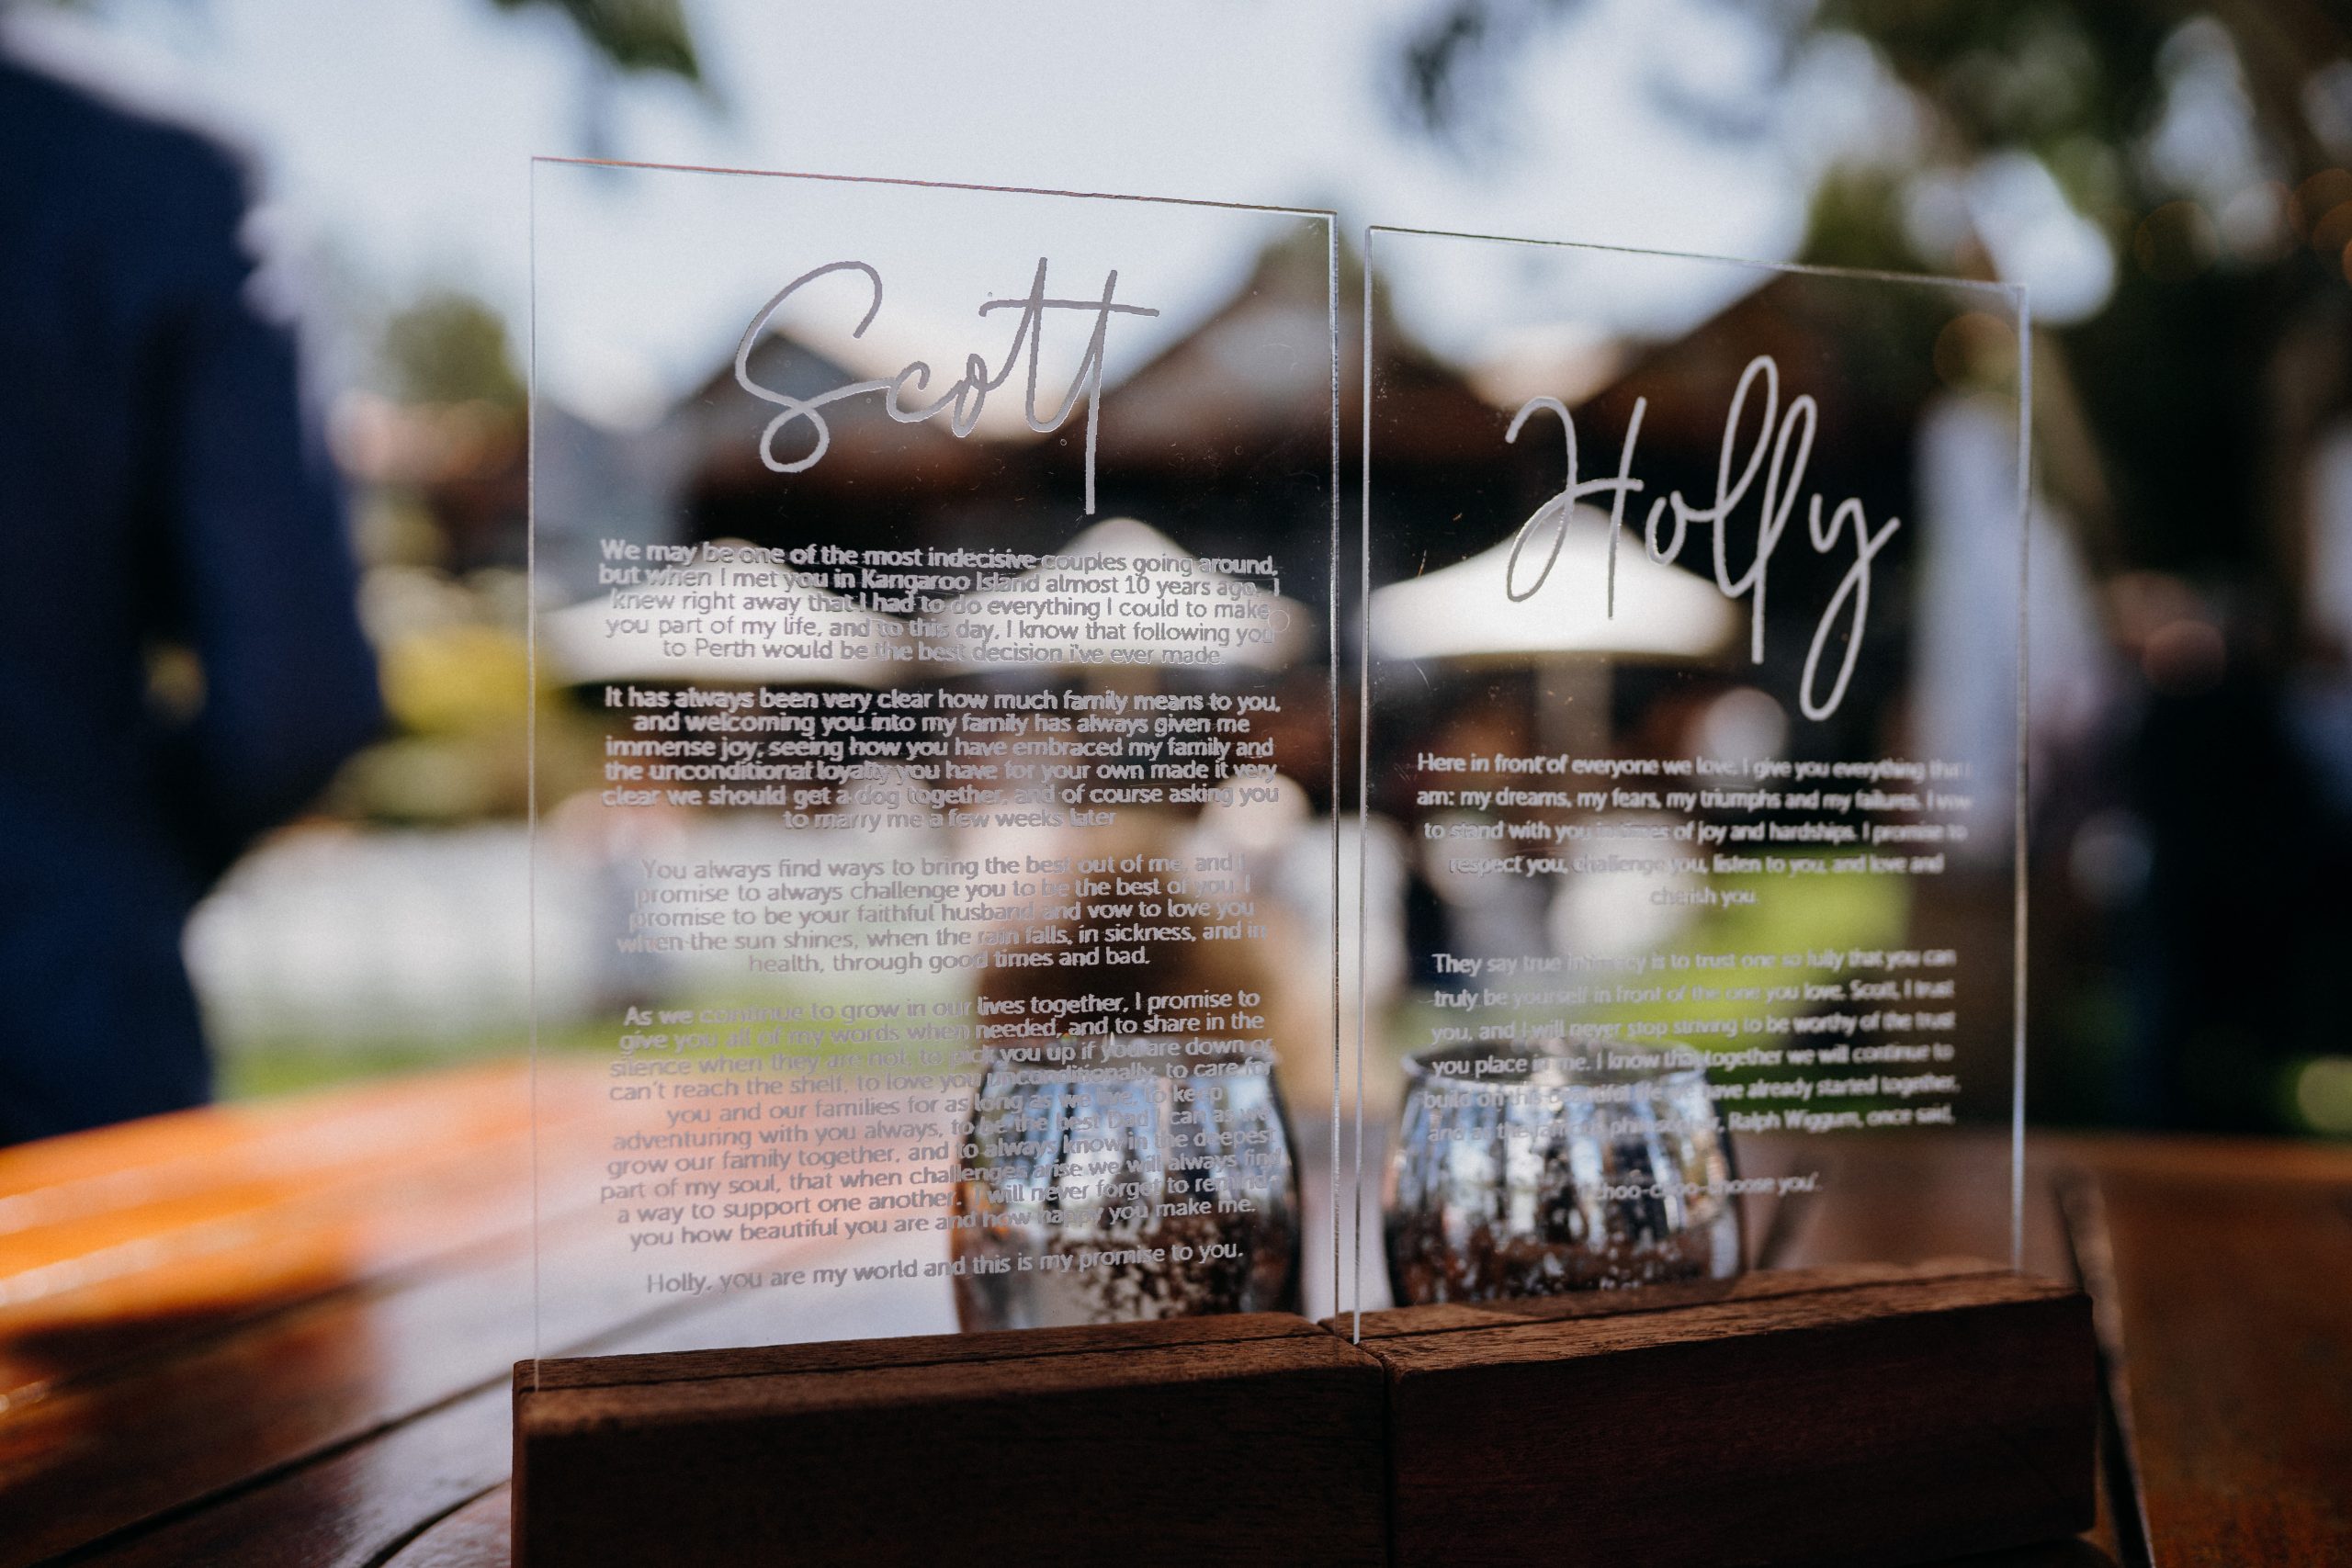 Scott
We may be one of the most indecisive couples going around,
but when I met you in Kangaroo Island almost 10 years ago, I
knew right away that I had to do everything I could to make
you part of my life, and to this day, I know that following you
to Perth would be the best decision i've ever made.
It has always been very clear how much family means to you,
and welcoming you into my family has always given me
immense joy, seeing how you have embraced my family and
the unconditional loyalty you have for your own made it very
clear we should get a dog together, and of course asking you
to marry me a few weeks later
You always find ways to bring the best out of me, and I
promise to always challenge you to be the best of you. I
promise to be your faithful husband and vow to love you
when the sun shines, when the rain falls, in sickness, and in
health, through good times and bad.
As we continue to grow in our lives together, I promise to
give you all of my words when needed, and to share in the
silence when they are not, to pick you up if you are down or
can't reach the shelf, to love you unconditionally, to care for
you and our families for as long as we live, to keep
adventuring with you always, to be the best Dad I can as we
grow our family together, and to always know in the deepest
part of my soul, that when challenges arise we will always find
a way to support one another. I will never forget to remind
you how beautiful you are and how happy you make me.
Holly, you are my world and this is my promise to you.
Holly
Here in front of everyone we love, I give you everything that I
am: my dreams, my fears, my triumphs and my failures. I vow
to stand with you in times of joy and hardships. I promise to
respect you, challenge you, listen to you, and love and
cherish you.
They say true intimacy is to trust one so fully that you can
truly be yourself in front of the one you love. Scott, I trust
you, and I will never stop striving to be worthy of the trust
you place in me. I know that together we will continue to
build on this beautiful life we have already started together,
and as the famous philosopher, Ralph Wiggum, once said,
choo-choo-choose you'.